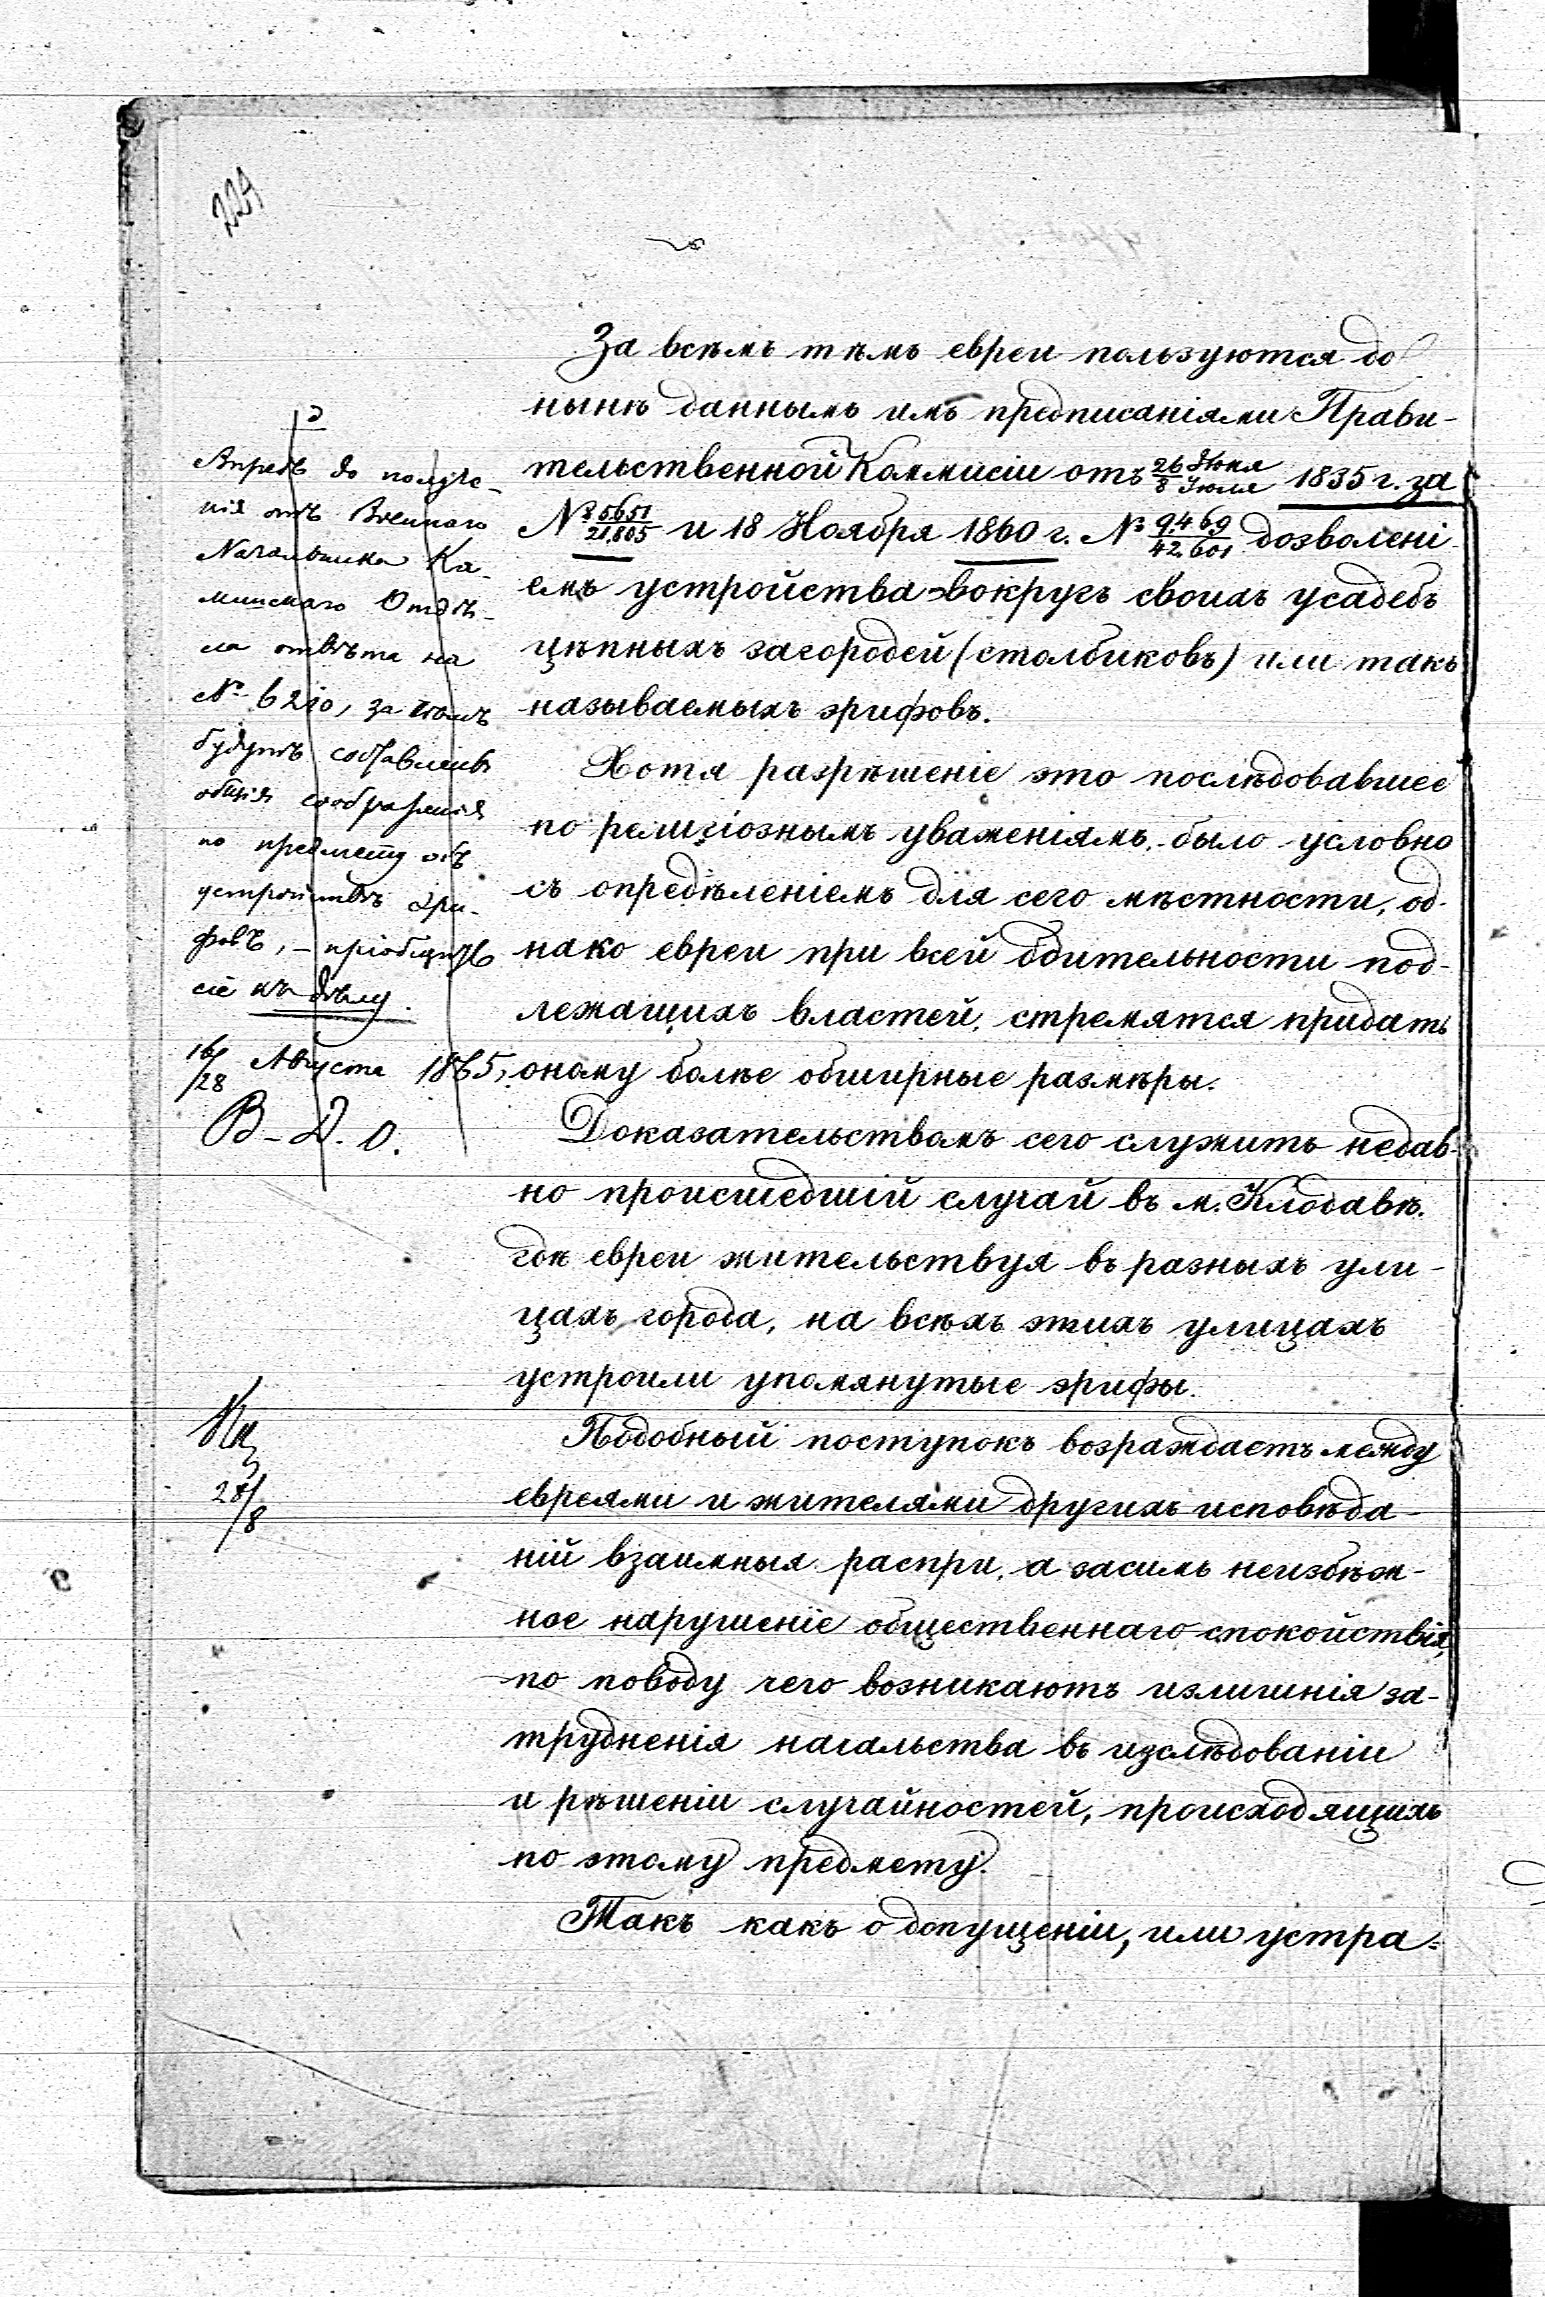 224
За всѣмъ тѣмъ евреи пользуются до
нынѣ даннымъ имъ предписаніями Прави-
тельственной Коммисіи отъ 26 Іюня/8 Іюля 1835 г. за
№ 5651/21,805 и 18 Ноября 1860 г. № 9,469/42,601 дозволені-
емъ устройства вокругъ своихъ усадебъ
цѣпныхъ загородей (столбиковъ) или такъ
называемыхъ эрифовъ.
Хотя разрѣшеніе это послѣдовавшее
по религіознымъ уваженіямъ, было условно
съ опредѣленіемъ для сего мѣстности, од-
нако евреи при всей бдительности под-
лежащихъ властей, стремятся придать
оному болѣе обширные размѣры.
Доказательствомъ сего служитъ недав-
но происшедшій случай въ м. Клодавѣ.
гдѣ евреи жительствуя въ разныхъ ули-
цахъ города, на всѣхъ этихъ улицахъ
устроили упомянутые эрифы.
Подобный поступокъ возраждаетъ между
евреями и жителями другихъ исповѣда-
ній взаимныя распри, а засимъ неизбѣж-
ное нарушеніе общественнаго спокойствія,
по поводу чего возникаютъ излишнія за-
трудненія начальства въ изслѣдованіи
и рѣшеніи случайностей, происходящихъ
по этому предмету.
Такъ какъ о допущеніи, или устра-
Впредь до получе-
нія отъ Военнаго
Начальника Ка-
лишскаго Отдѣ-
ла отвѣта на
№ 6210, за тѣмъ
будутъ составлены
общія соображенія
по предмету объ
устройствѣ эри-
фовъ, – пріобщить
сіе къ дѣлу.
16/28 Августа 1865,
В. Д. О.
28/8